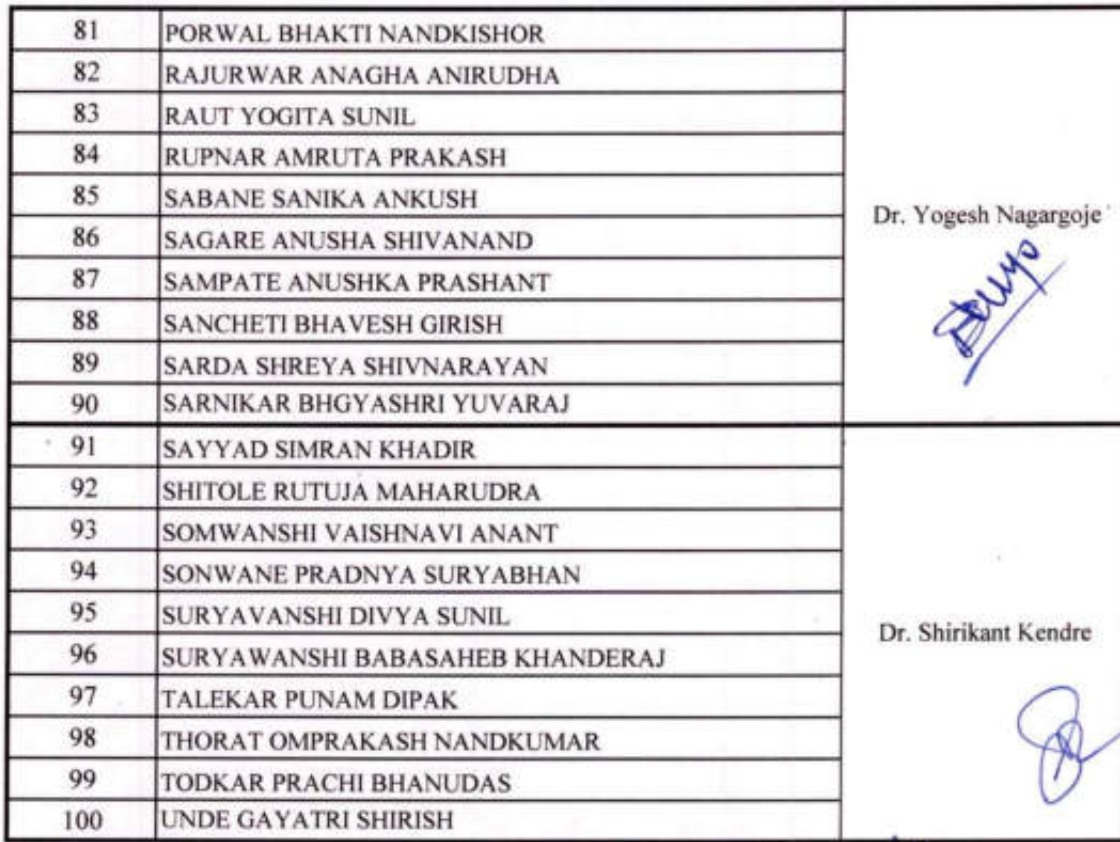 81 PORWAL BHAKTI NANDKISHOR
82 RAJURWAR ANAGHA ANIRUDHA
83 RAUT YOGITA SUNIL
84 RUPNAR AMRUTA PRAKASH
85 SABANE SANIKA ANKUSH
Dr. Yogesh Nagargoje
86 SAGARE ANUSHA SHIVANAND
87 SAMPATE ANUSHKA PRASHANT
88 SANCHETI BHAVESH GIRISH
89 SARDA SHREYA SHIVNARAYAN
90 SARNIKAR BHGYASHRI YUVARAJ
91 SAYYAD SIMRAN KHADIR
92 SHITOLE RUTUJA MAHARUDRA
93 SOMWANSHI VAISHNAVI ANANT
94 SONWANE PRADNYA SURYABHAN
95 SURYAVANSHI DIVYA SUNIL
Dr. Shirikant Kendre
96 SURYAWANSHI BABASAHEB KHANDERAJ
97 TALEKAR PUNAM DIPAK
98 THORAT OMPRAKASH NANDKUMAR
99 TODKAR PRACHI BHANUDAS
100 UNDE GAYATRI SHIRISH